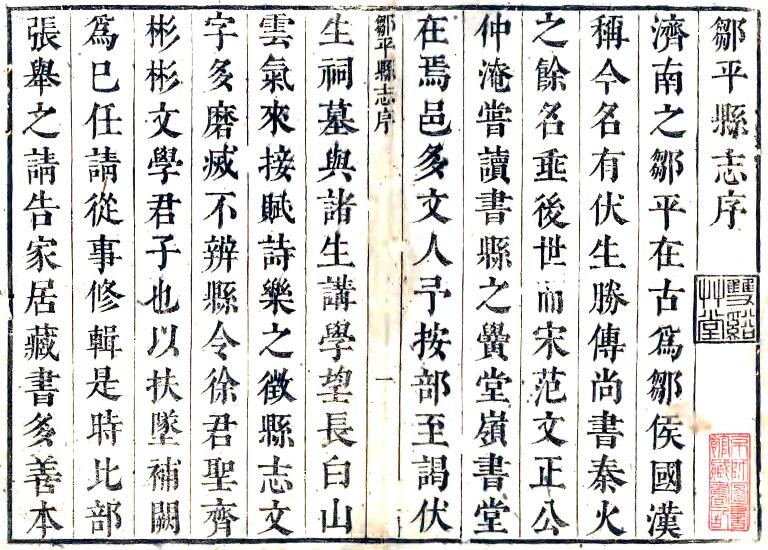 鄒平縣志序
雙谿
艸堂
京師圖書
館藏書印
濟南之鄒平在古爲鄒侯國漢
稱今名有伏生勝傳尚書秦火
之餘名垂後世而宋范文正公
仲淹嘗讀書縣之黌堂嶺書堂
在焉邑多文人予按部至謁伏
鄒平縣志序
一
生祠墓與諸生講學望長白山
雲氣來接賦詩樂之徵縣志文
字多磨烕不辨縣令徐君聖齊
彬彬文學君子也以扶墜補闕
爲已任請從事修輯是時比部
張舉之請告家居藏書多善本